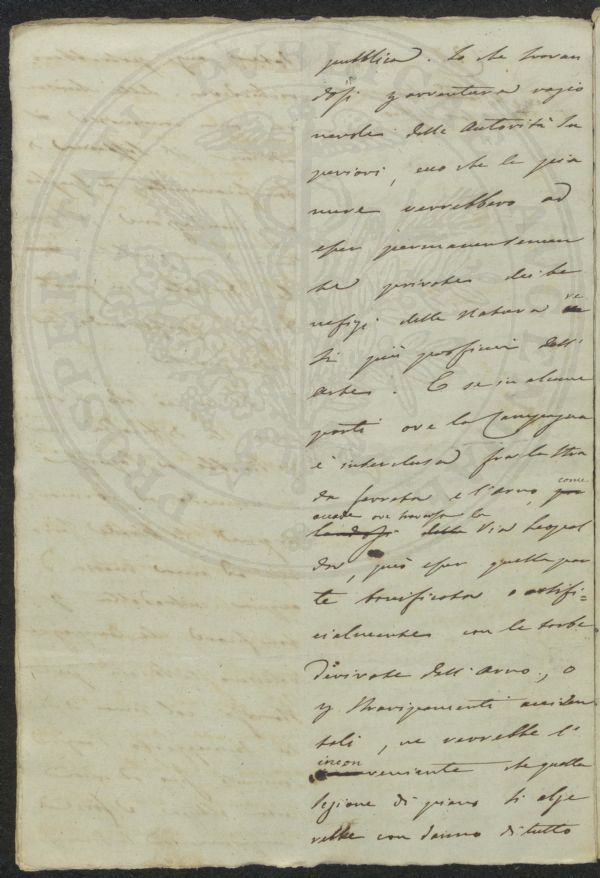 pubblica. Lo che trovan
dosi p avventura ragio
nevole dalle Autorità Su
periori, ecco che le pia
nure verrebbero ad
esser permanentemen
te private dei be
nefizj della Natura re
si più proficui dall'
arte. E se in alcune
parti ove la Campagna
è interclusa fra la Stra
da ferrata e l'Arno, come
accade ove traversa la
della Via Leopol
da, può esser quella par
te bonificata o artifi=
cialmente con le torbe
derivate dall'Arno, o
p straripamenti acciden
tali, ne verrebbe l'
inconveniente che quella
sezione di piano si alze
rebbe con danno di tutto
PROSPERITATI PUBLICAE